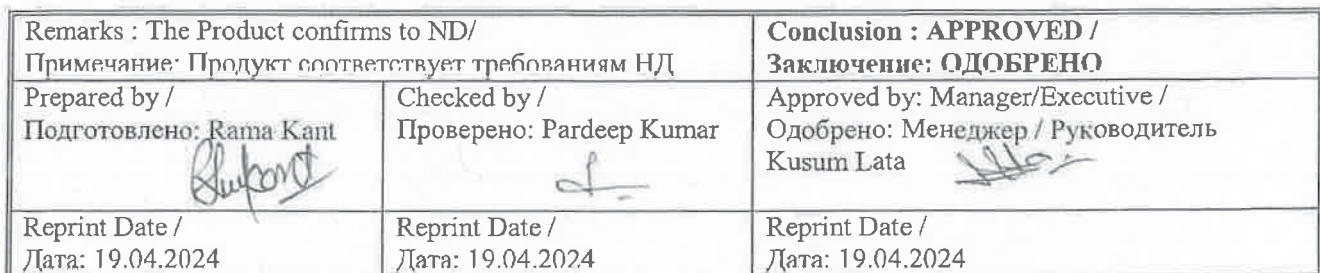 Remarks : The Product confirms to ND/
Примечание: Продукт соответствует требованиям НД
Conclusion : APPROVED /
Заключение: ОДОБРЕНО
Prepared by /
Подготовлено: Rama Kant
Checked by /
Проверено: Pardeep Kumar
Approved by: Manager/Executive /
Одобрено: Менеджер / Руководитель
Kusum Lata
Reprint Date /
Дата: 19.04.2024
Reprint Date /
Дата: 19.04.2024
Reprint Date /
Дата: 19.04.2024